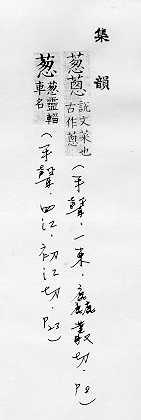 集韻
葱蔥
說文菜也
古作蔥
(平聲，一東，麤叢切，P8)
葱
葱靈輜
車名
(平聲，四江，初江切，P23)